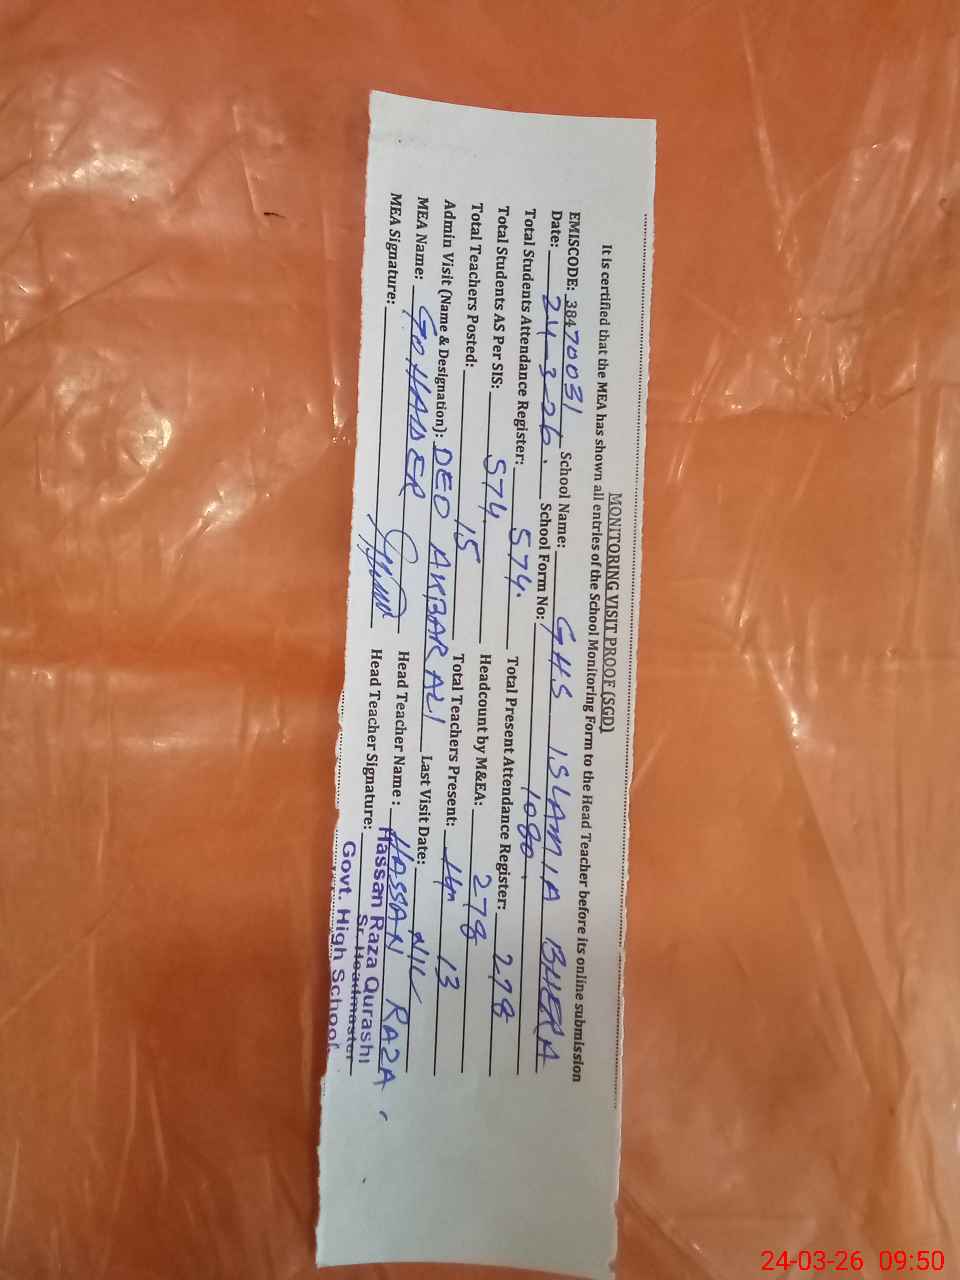 MONITORING VISIT PROOF (SGD)
It is certified that the MEA has shown all entries of the School Monitoring Form to the Head Teacher before its online submission
EMISCODE: 38470031 School Name: GHS ISLAMIA BHERA
Date: 24-3-26. School Form No: 1080.
Total Students Attendance Register: 574. Total Present Attendance Register: 278
Total Students AS Per SIS: 574 Headcount by M&EA: 278
Total Teachers Posted: 15 Total Teachers Present: 13
Admin Visit (Name & Designation): DEO AKBAR ALI Last Visit Date: NIL
MEA Name: Head Teacher Name : HASSAN RAZA
MEA Signature: Head Teacher Signature:
Hassan Raza Qurashi
Sr. Headmaster
Govt. High School
24-03-26 09:50